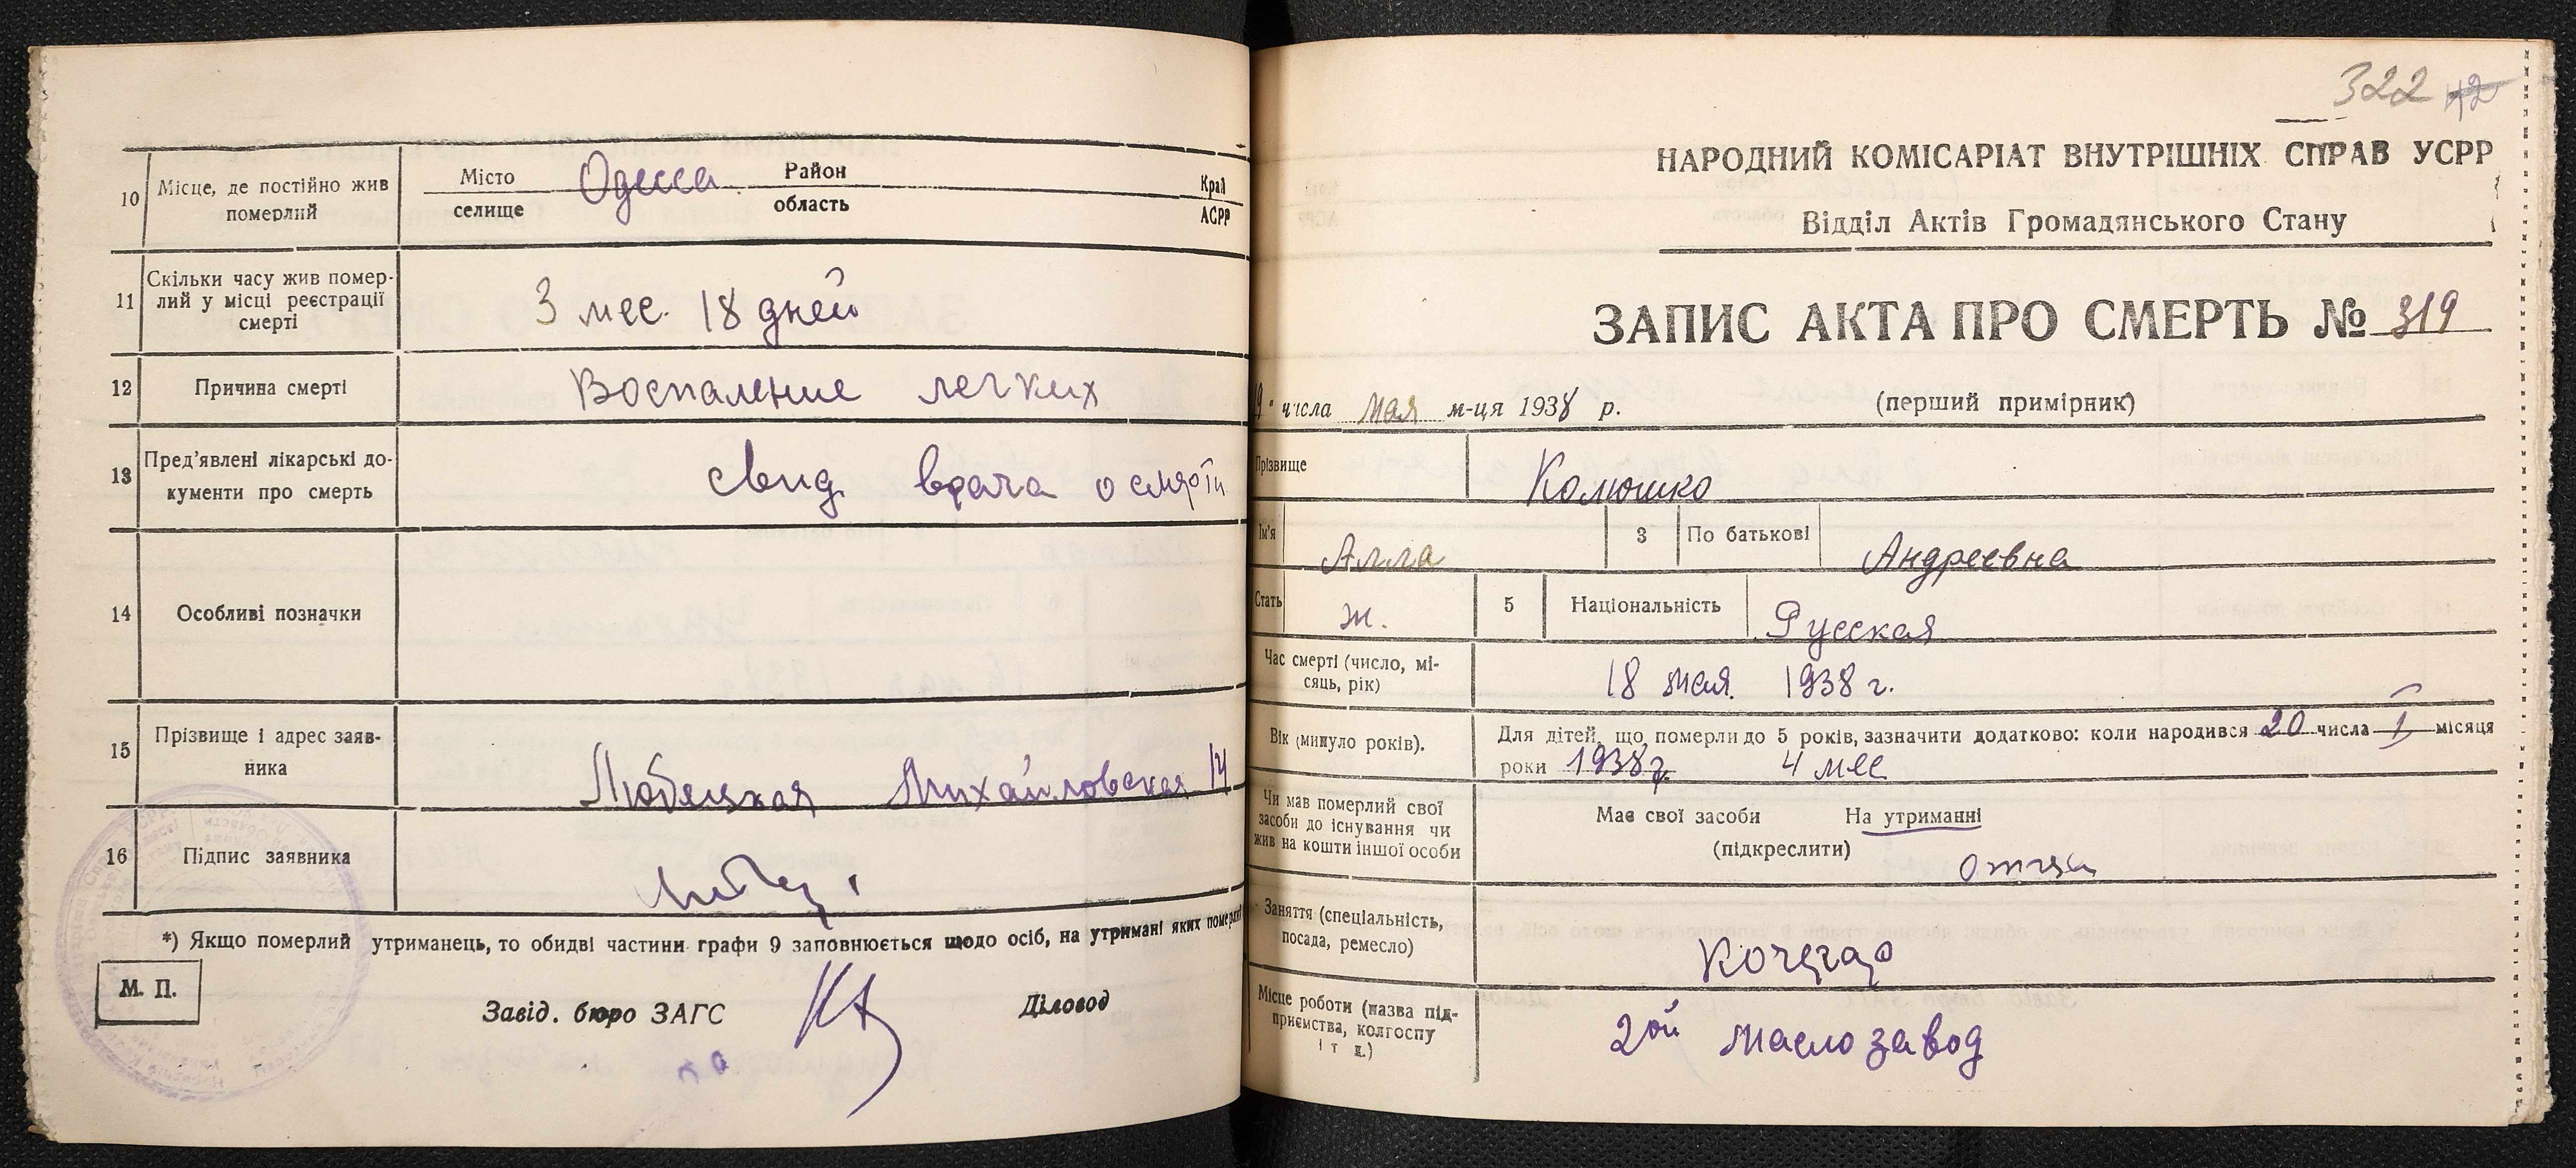 10
Місце, де постійно жив
померлий
Місто
селище
Одесса
Район
область
Край
АСРР
11
Скільки часу жив помер-
лий у місці реєстрації
смерті
3 мес. 18 дней
12
Причина смерті
Воспаление легких
13
Пред'явлені лікарські до-
кументи про смерть
свид врача о смерти
14
Особливі позначки
15
Прізвище і адрес заяв-
ника
Любецкая Михайловская 14
16
Підпис заявника
*) Якщо померлий утриманець, то обидві частини графи 9 заповнюється щодо осіб, на утримані яких померлий
М. П.
Завід. бюро ЗАГС
Діловод
322 42
НАРОДНИЙ КОМІСАРІАТ ВНУТРІШНІХ СПРАВ УСРР
Відділ Актів Громадянського Стану
ЗАПИС АКТА ПРО СМЕРТЬ № 319
9 " числа мая м-ця 1938 р.
(перший примірник)
Прізвище
Колюшко
Ім'я
Алла
3
По батькові
Андреевна
Стать
ж.
5
Національність
Русская
Час смерті (число, мі-
сяць, рік)
18 мая. 1938 г.
Вік (минуло років).
Для дітей, що померли до 5 років, зазначити додатково: коли народився 20 числа I місяця
роки 1938 г. 4 мес
Чи мав померлий свої
засоби до існування чи
жив на кошти іншої особи
Має свої засоби
На утриманні
(підкреслити)
отца
Заняття (спеціальність,
посада, ремесло)
кочегар
Місце роботи (назва під-
приємства, колгоспу
і т д.)
2ой маслозавод